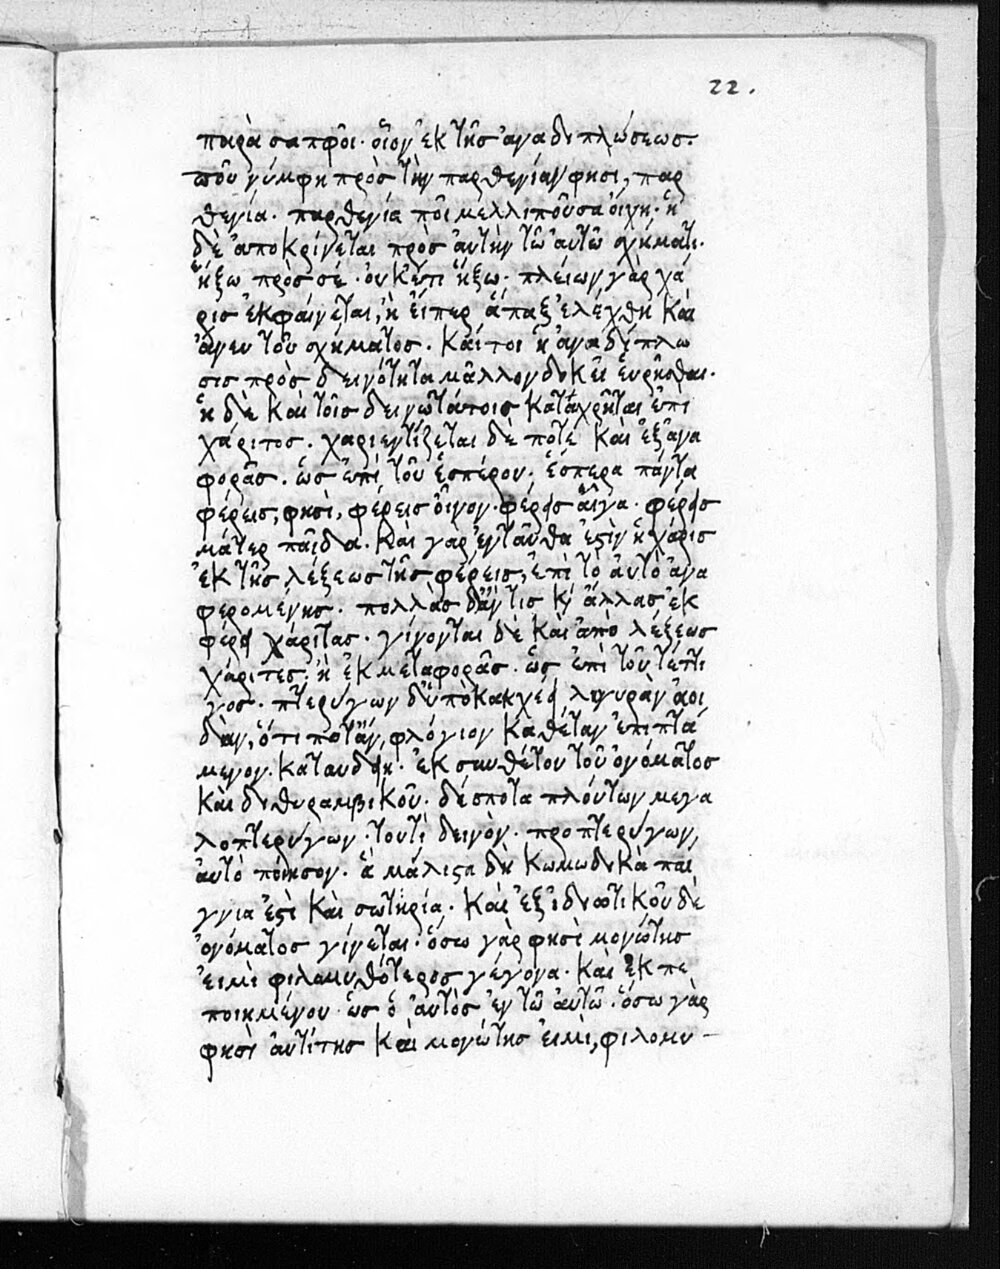 22.
παρὰ σαπφοῖ· οἷον ἐκ τῆς ἀναδιπλώσεως.
ποῦ νύμφη πρὸς τὴν παρθενίαν φησι, παρ
θενία· παρθενία ποῖ με λλιποῦσα οἴχη· ἡ
δὲ ἀποκρίνεται πρὸς αὐτὴν τῶ αὐτῶ σχήματι.
ἥξω πρὸς σέ· οὐκέτι ἥξω· πλείων γὰρ χά
ρις ἐκφαίνεται, ἢ εἴπερ ἅπαξ ἐλέχθη καὶ
ἄνευ τοῦ σχήματος. καίτοι ἡ ἀναδίπλω
σις πρὸς δεινότητα μᾶλλον δοκεῖ εὑρῆσθαι.
ἡ δὲ καὶ τοῖς δεινωτάτοις καταχρῆται ἐπι
χάριτος. χαριεντίζεται δέ ποτε καὶ ἐξ ἀνα
φορᾶς. ὡς ἐπὶ τοῦ ἑσπέρου· ἕσπερα πάντα
φέρεις, φησὶ, φέρεις οἶνον· φέρεις αἶγα· φέρεις
μάτερ παῖδα. καὶ γαρ ἐνταῦθα ἐστὶν ἡ χάρις
ἐκ τῆς λέξεως τῆς φέρεις, ἐπὶ τὸ αὐτὸ ἀνα
φερομένης. πολλὰς δ' ἄν τις κ ἄλλας ἐκ
φέρει χάριτας. γίνονται δὲ καὶ ἀπὸ λέξεως
χάριτες· ἢ ἐκ μεταφορᾶς· ὡς ἐπὶ τοῦ τέττι
γος· πτερύγων δ' ὑπὸκακχέει λιγυρὰν ἀοι
δὰν, ὅτι ποτ' ἂν, φλόγιον καθέταν ἐπιπτά
μενον· καταυδείη· ἐκ συνθέτου τοῦ ὀνόματος
καὶ διθυραμβικοῦ· δέσποτα πλούτων μεγα
λοπτερύγων· τουτὶ δεινὸν· προ πτερύγων,
αὐτὸ ποίησον· ἃ μάλιστα δὴ κωμωδικὰ παί
γνια ἐστὶ καὶ σωτηρία. καὶ ἐξ ἰδιωτικοῦ δὲ
ὀνόματος γίγνεται· ὅσω γὰρ φησὶ μονώτης
εἰμὶ φιλομυθότερος γέγονα· καὶ ἐκ πε
ποιημένου ὡς ὁ αὐτὸς ἐν τῶ αὐτῶ· ὅσω γὰρ
φησὶ αὐτίτης καὶ μονώτης εἰμὶ, φιλομυ-